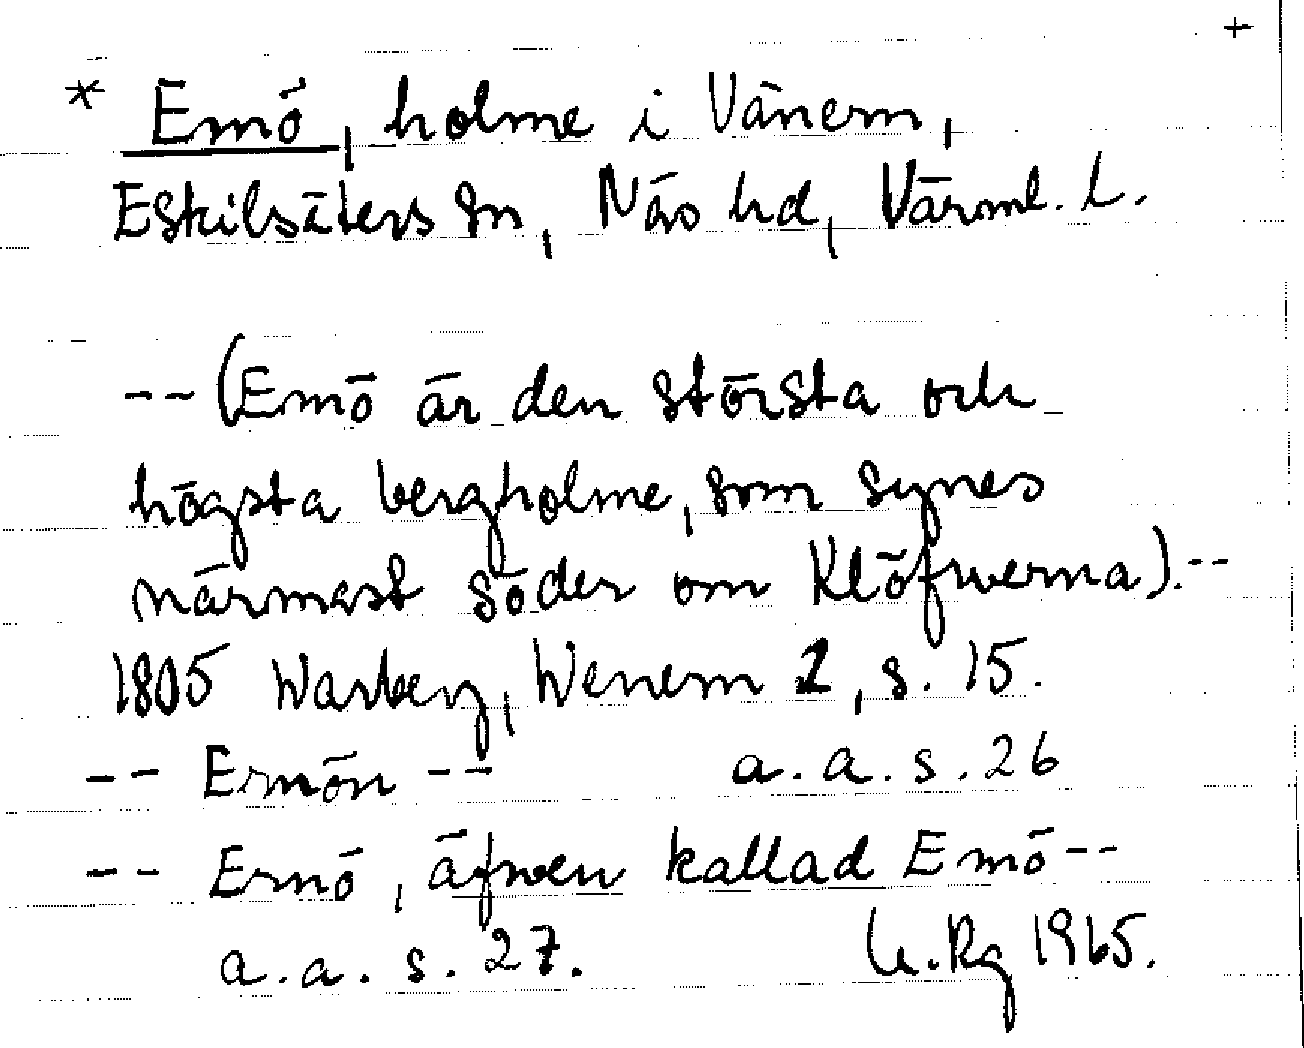 +
* Emö, holme i Vänern,
Eskilsäters sn, Näs hd, Värml. L.
-- (Emö är den största och
högsta bergholme, som synes
närmast söder om Klöfwerna).--
1805 Warberg, Wenern 2, s. 15.
-- Ernön -- a.a.s.26
-- Ernö, äfwen kallad Emö --
a.a. s. 27. G.Rg 1965.